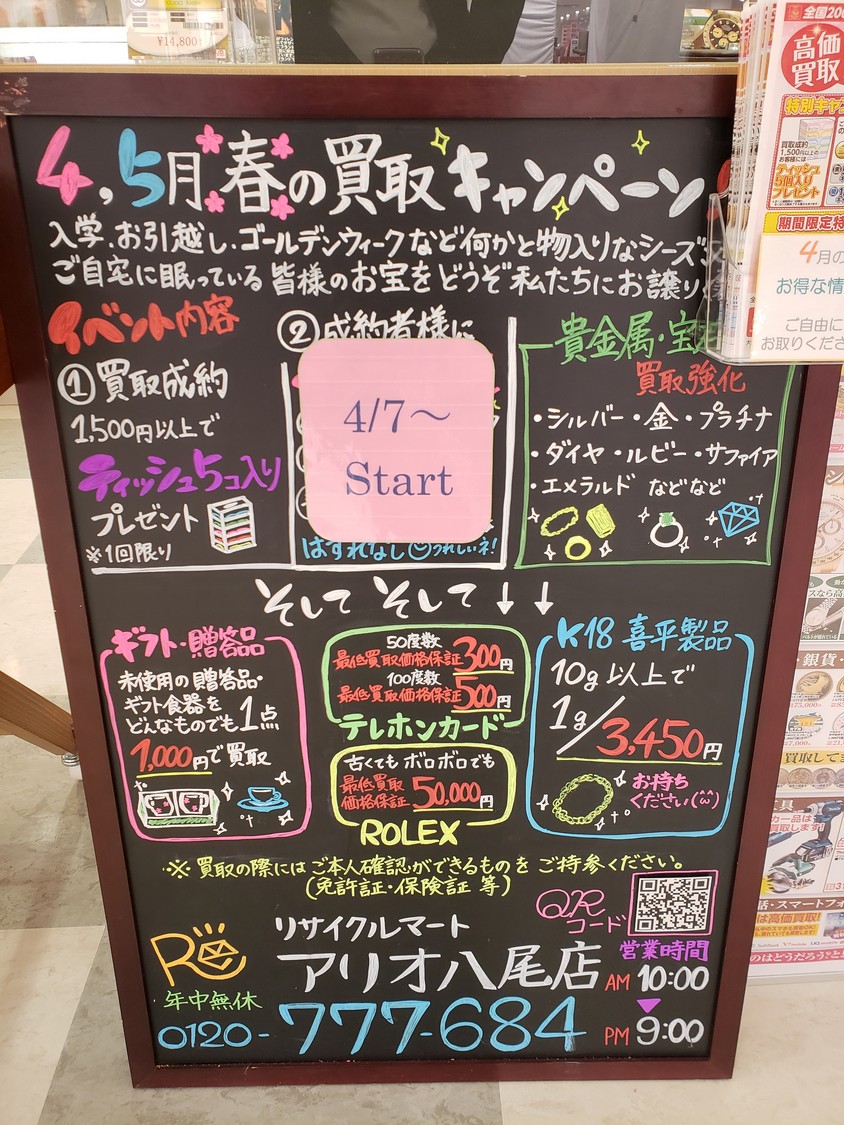 ¥14,800
4,5月 春の買取キャンペーン
入学、お引越し、ゴールデンウィークなど何かと物入りなシーズ
ご自宅に眠っている 皆様のお宝をどうぞ私たちにお譲り
イベント内容
①買取成約
1,500円以上で
ティッシュ5コ入り
プレゼント
※1回限り
②成約者様に
4/7～
Start
はずれなし うれしいネ!
貴金属・宝
買取強化
・シルバー・金・プラチナ
・ダイヤ・ルビー・サファイア
・エメラルド などなど
そして そして ↓ ↓
ギフト・贈答品
未使用の贈答品・
ギフト食器を
どんなものでも1点
1,000円で買取
50度数
最低買取価格保証300円
100度数
最低買取価格保証500円
テレホンカード
古くても ボロボロでも
最低買取
価格保証 50,000円
ROLEX
K18 喜平製品
10g以上で
1g/3,450円
お持ち
ください(^ω^)
※ 買取の際には ご本人確認ができるものを ご持参ください。
(免許証・保険証 等)
QR
コード
リサイクルマート
アリオ八尾店
営業時間
AM 10:00
▼
PM 9:00
Re
年中無休
0120-777-684
高価
買取
買取成約
1,500円以上の
お客様には
ティッシュ
5個入り
プレゼント
期間限定特
4月の
お得な情
ご自由に
お取りくださ